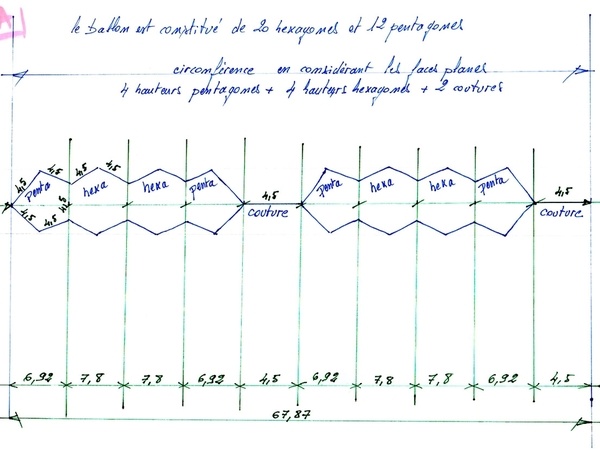 le ballon est constitué de 20 hexagones et 12 pentagones
circonférence en considérant les faces planes
4 hauteurs pentagones + 4 hauteurs hexagones + 2 coutures
4,5 4,5 4,5 4,5
penta hexa hexa penta penta hexa hexa penta
4,5 4,5 4,5 4,5 4,5
couture couture
6,92 7,8 7,8 6,92 4,5 6,92 7,8 7,8 6,92 4,5
67,87